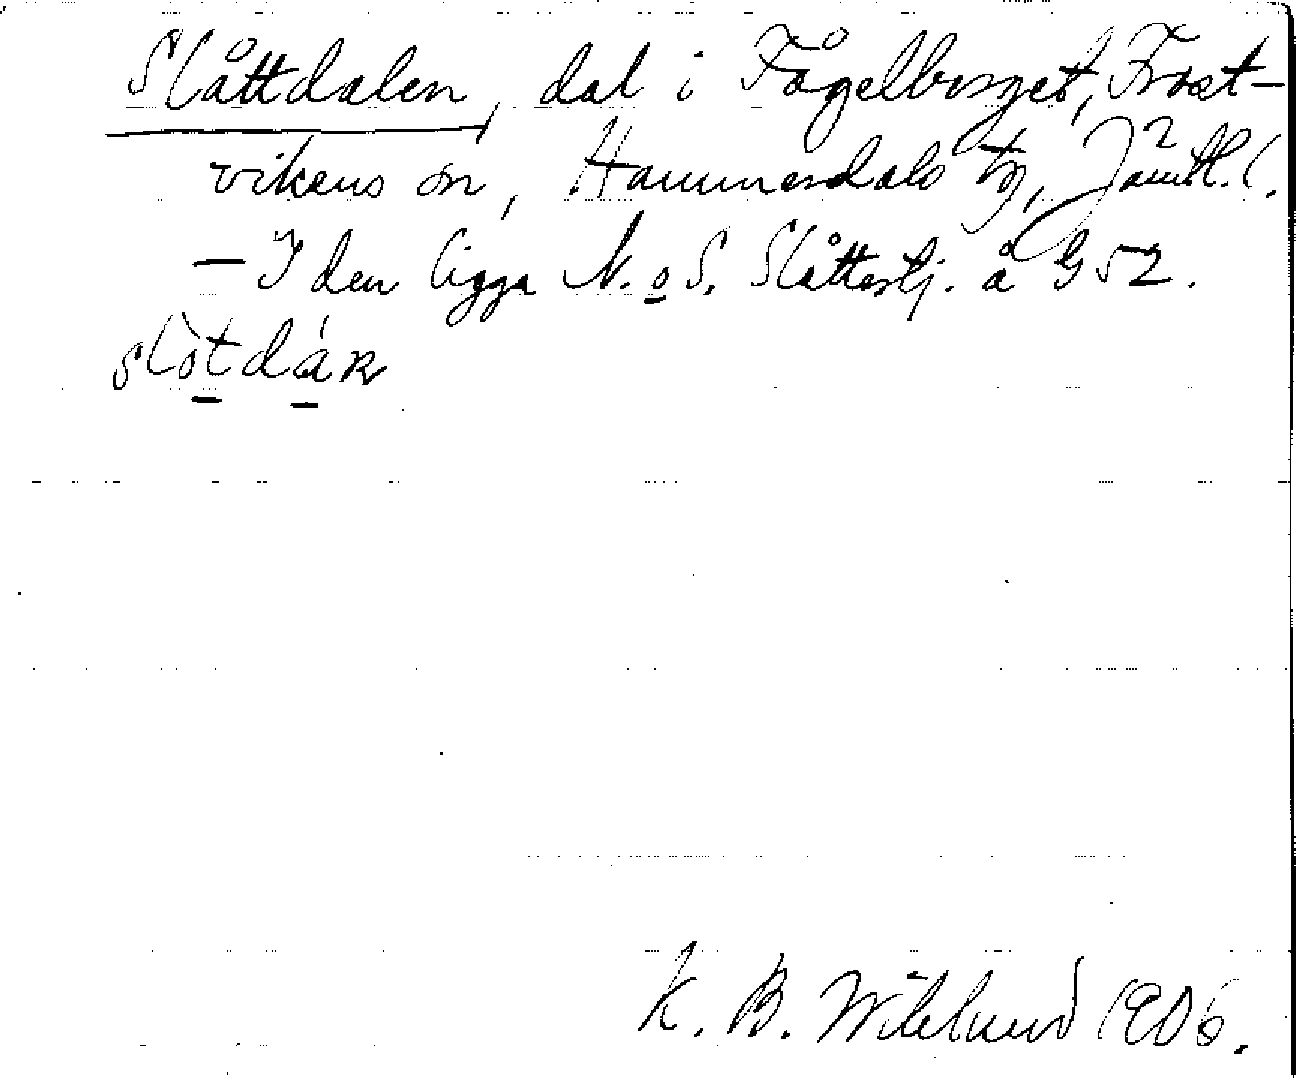 Slåttdalen, dal i Fågelberget, Frost-
vikens sn, Hammerdals tg, Jämtl. l.
— I den ligga N. o S. Slåttestj. å G 52.
slòtdáɴ
K. B. Wiklund 1906.